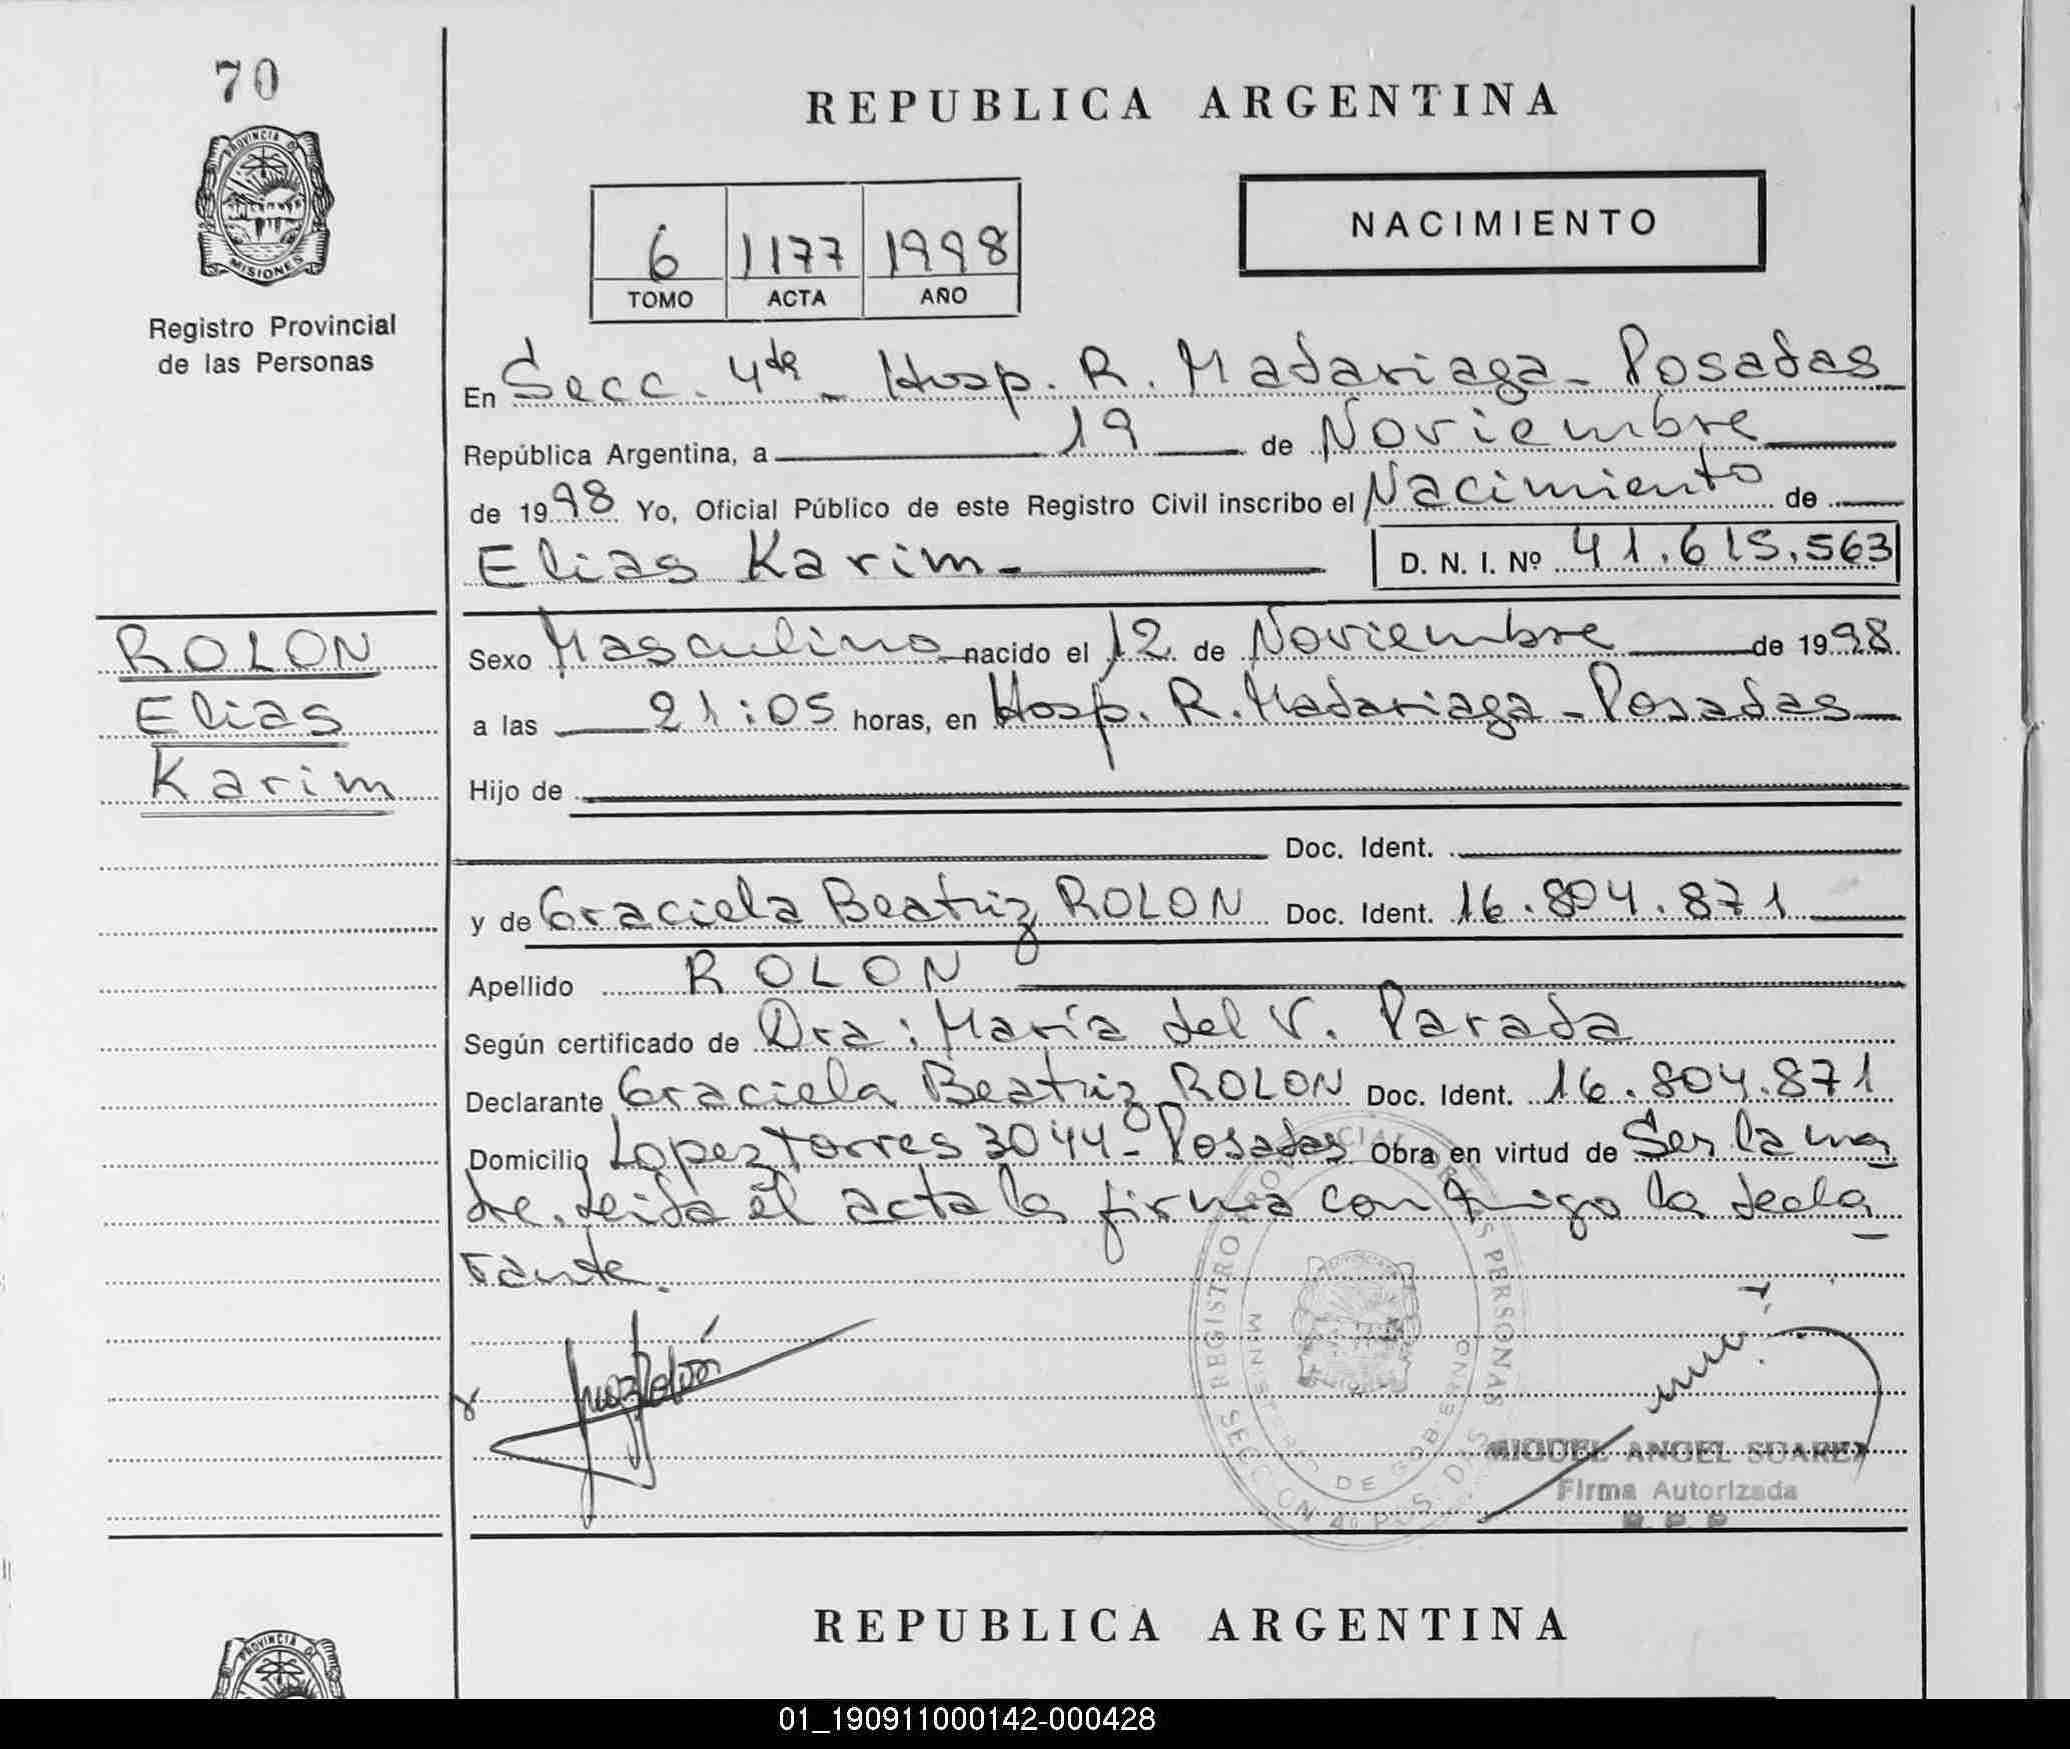 70
PROVINCIA D
MISIONES
Registro Provincial
de las Personas
REPUBLICA ARGENTINA
NACIMIENTO
6 1177 1998
TOMO ACTA AÑO
En Secc. 4ta - Hosp. R. Madariaga - Posadas
República Argentina, a 19 de Noviembre
de 1998 Yo, Oficial Público de este Registro Civil inscribo el Nacimiento de
Elias Karim - D. N. I. Nº 41.615.563
ROLON
Elias
Karim
Sexo Masculino nacido el 12 de Noviembre de 1998.
a las 21:05 horas, en Hosp. R. Madariaga - Posadas
Hijo de
Doc. Ident.
y de Graciela Beatriz ROLON Doc. Ident. 16.804.871
Apellido ROLON
Según certificado de Dra: María del V. Parada
Declarante Graciela Beatriz ROLON Doc. Ident. 16.804.871
Domicilio Lopez Torres 3044 - Posadas Obra en virtud de Ser la ma
dre. Leida el acta la firma conmigo la decla
rante.
REGISTRO PERSONAS
MINISTERIO DE GOBIERNO
SECCION 4º POSADAS
MIGUEL ANGEL SUAREZ
Firma Autorizada
R. P. P.
REPUBLICA ARGENTINA
PROVINCIA D
01_190911000142-000428